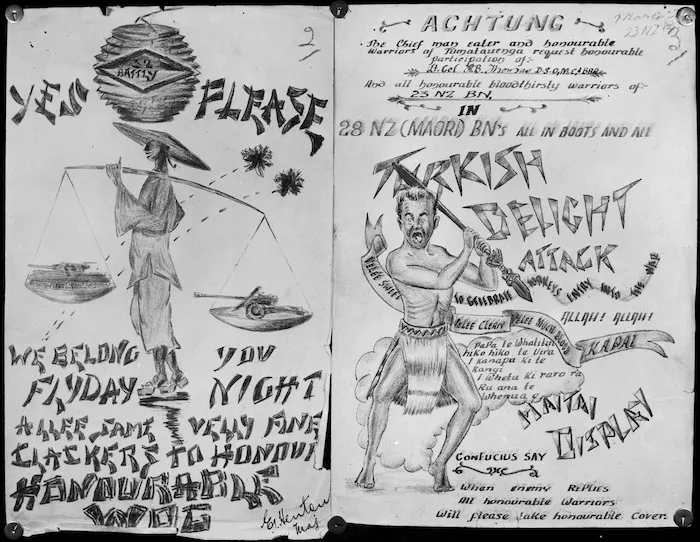 2
32
BATTLY
YES PLEASE
WE BELONG YOU
FLYDAY NIGHT
ALLEE SAME VELLY FINE
CLACKERS TO HONOUR
HONOURABLE
WOG
Maj
23 NZ
ACHTUNG
The Chief man eater and honourable
Warriors of Tumatauenga request honourable
participation of:-
Lt. Col. Thomas D.S.O. M.C. & BAR
And all honourable bloodthirsty warriors of:-
23 NZ BN.
IN
28 NZ (MAORI) BN's ALL IN BOOTS AND ALL
TURKISH
DELIGHT
ATTACK
VELEE SWEET
TO GENERATE HOPELESS ENTRY INTO THE WAR
ALLAH! ALLAH!
VELEE CLEAN VELEE MUCH BLOOD KAPAI
Papa te Whatitiri
hiko hiko te Uira
I Kanapa Ki te
Rangi
I Whetu Ki raro ra
Rua ana te
Whenua E
MAITAI
DISPLAY
CONFUCIUS SAY
When enemy REPLIES
All honourable Warriors
Will please take honourable Cover.